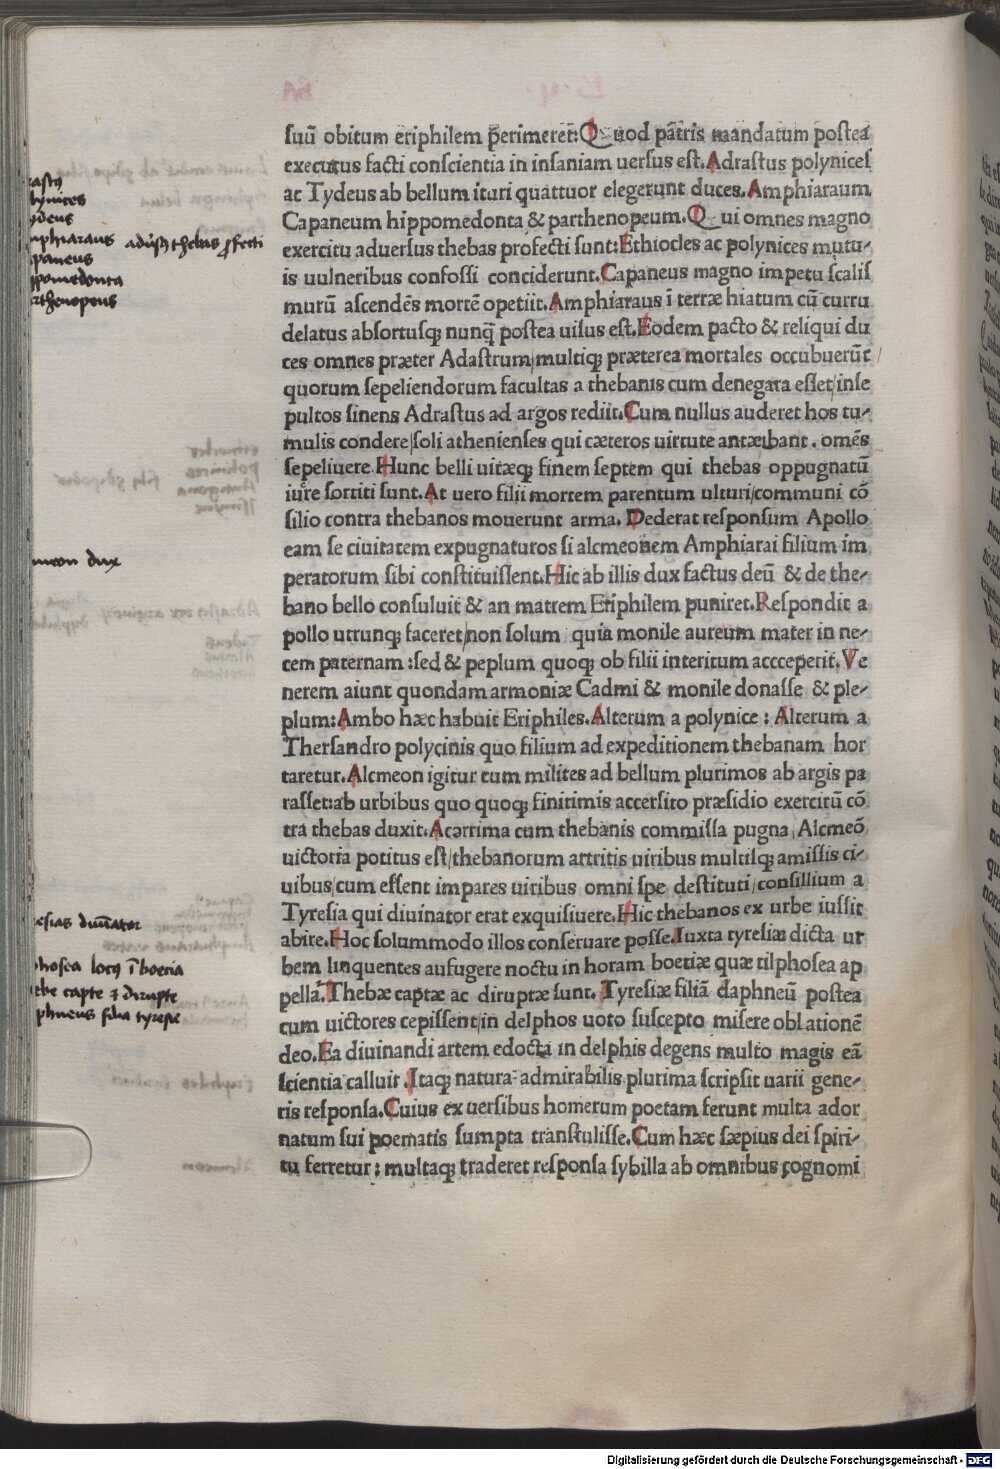 suū obitum eriphilem perimeret: Quod patris mandatum postea
executus facti conscientia in insaniam uersus est. Adrastus polynices
ac Tydeus ab bellum ituri quattuor elegerunt duces. Amphiaraum
Capaneum hippomedonta & parthenopeum. Qui omnes magno
exercitu aduersus thebas profecti sunt: Ethiocles ac polynices mutu-
is uulneribus confossi conciderunt. Capaneus magno impetu scalis
murū ascendēs mortē opetiit. Amphiaraus ī terræ hiatum cū curru
delatus absortusq; nunq̄ postea uisus est. Eodem pacto & reliqui du
ces omnes præter Adastrum/multiq; præterea mortales occubuerūt
quorum sepeliendorum facultas a thebanis cum denegata esset/inse
pultos sinens Adrastus ad argos rediit. Cum nullus auderet hos tu-
mulis condere/soli athenienses qui cæteros uirtute antæibant. omēs
sepeliuere. Hunc belli uitæq; finem septem qui thebas oppugnatū
iure sortiti sunt. At uero filii mortem parentum ulturi/communi cō
silio contra thebanos mouerunt arma. Dederat responsum Apollo
eam se ciuitatem expugnaturos si alcmeonem Amphiarai filium im
peratorum sibi constituissent. Hic ab illis dux factus deū & de the-
bano bello consuluit & an matrem Eriphilem puniret. Respondit a
pollo utrunq; faceret/non solum quia monile aureum mater in ne-
cem paternam: sed & peplum quoq; ob filii interitum accceperit. Ve
nerem aiunt quondam armoniæ Cadmi & monile donasse & ple-
plum: Ambo hæc habuit Eriphiles. Alterum a polynice: Alterum a
Thersandro polycinis quo filium ad expeditionem thebanam hor
taretur. Alcmeon igitur cum milites ad bellum plurimos ab argis pa
rasset: ab urbibus quo quoq; finitimis accersito præsidio exercitū cō
tra thebas duxit. Acərrima cum thebanis commissa pugna/Alcmeō
uictoria potitus est/thebanorum artritis uiribus multisq; amissis ci-
uibus/cum essent impares uiribus omni spe destituti/consillium a
Tyresia qui diuinator erat exquisiuere. Hic thebanos ex urbe iussit
abire. Hoc solummodo illos conseruare posse. Iuxta tyresiæ dicta ur
bem linquentes aufugere noctu in horam boetiæ quæ tilphosea ap
pellaī. Thebæ captæ ac diruptæ sunt. Tyresiæ filiā daphneū postea
cum uictores cepissent/in delphos uoto suscepto misere oblationē
deo. Ea diuinandi artem edocta in delphis degens multo magis eā
scientia calluit. Itaq; natura admirabilis plurima scripsit uarii gene-
ris responsa. Cuius ex uersibus homerum poetam ferunt multa ador
natum sui poematis sumpta transtulisse. Cum hæc sæpius dei spiri-
tu ferretur: multaq; traderet responsa sybilla ab omnibus cognomi
phiaraus
paneus
ppomedonta
rthenopeus
meon dux
esias diuinator
phosea locus ī boecia
be capte & dirupte
phneus filia tyresie
Digitalisierung gefördert durch die Deutsche Forschungsgemeinschaft - DFG